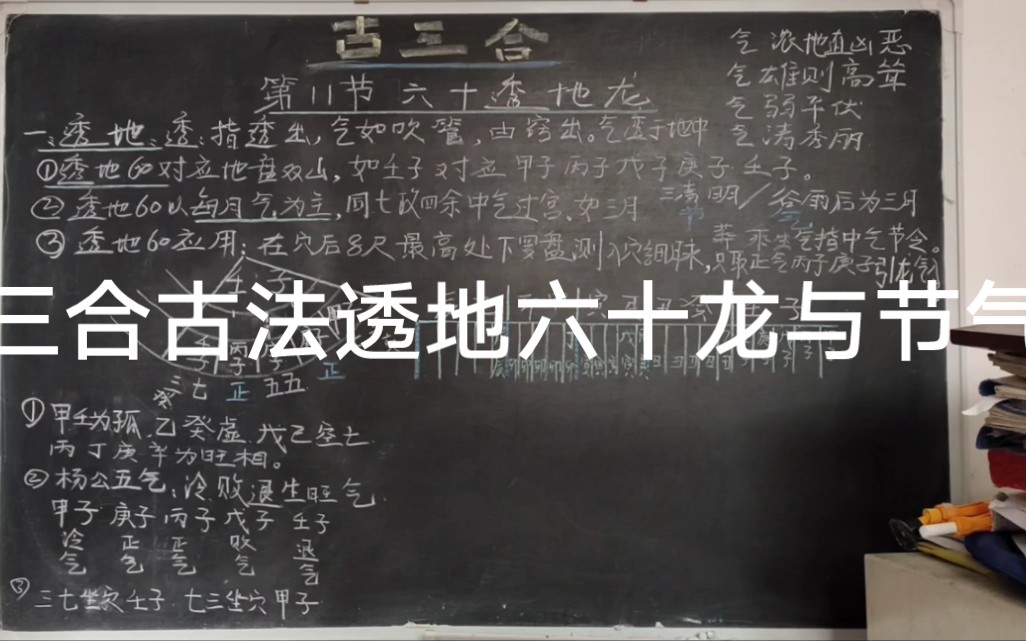 古三合
第11节 六十透地龙
气浓地直凶恶
气雄则高耸
气弱平伏
气涛秀丽
一、透地、透:指透出,气如吹管,由窍出。气运于地中
①透地60对应地盘双山,如壬子对应甲子丙子戊子庚子壬子。
②透地60以每月气为主,同七政四余中气过宫.如三月
三清明/谷雨后为三月
节
③透地60应用:在穴后8尺最高处下罗盘测入穴细脉,
葬乘生气指中气节令。
只取正气丙子庚子引龙气
壬 子
三合古法透地六十龙与节气
丙子
三七 正 五五 正
①甲壬为孤.乙癸虚.戊己空亡
丙丁庚辛为旺相。
②杨公五气:冷败退生旺气.
甲子 庚子 丙子 戊子 壬子
冷气 正气 正气 败气 退气
③三七坐穴壬子 七三坐穴甲子